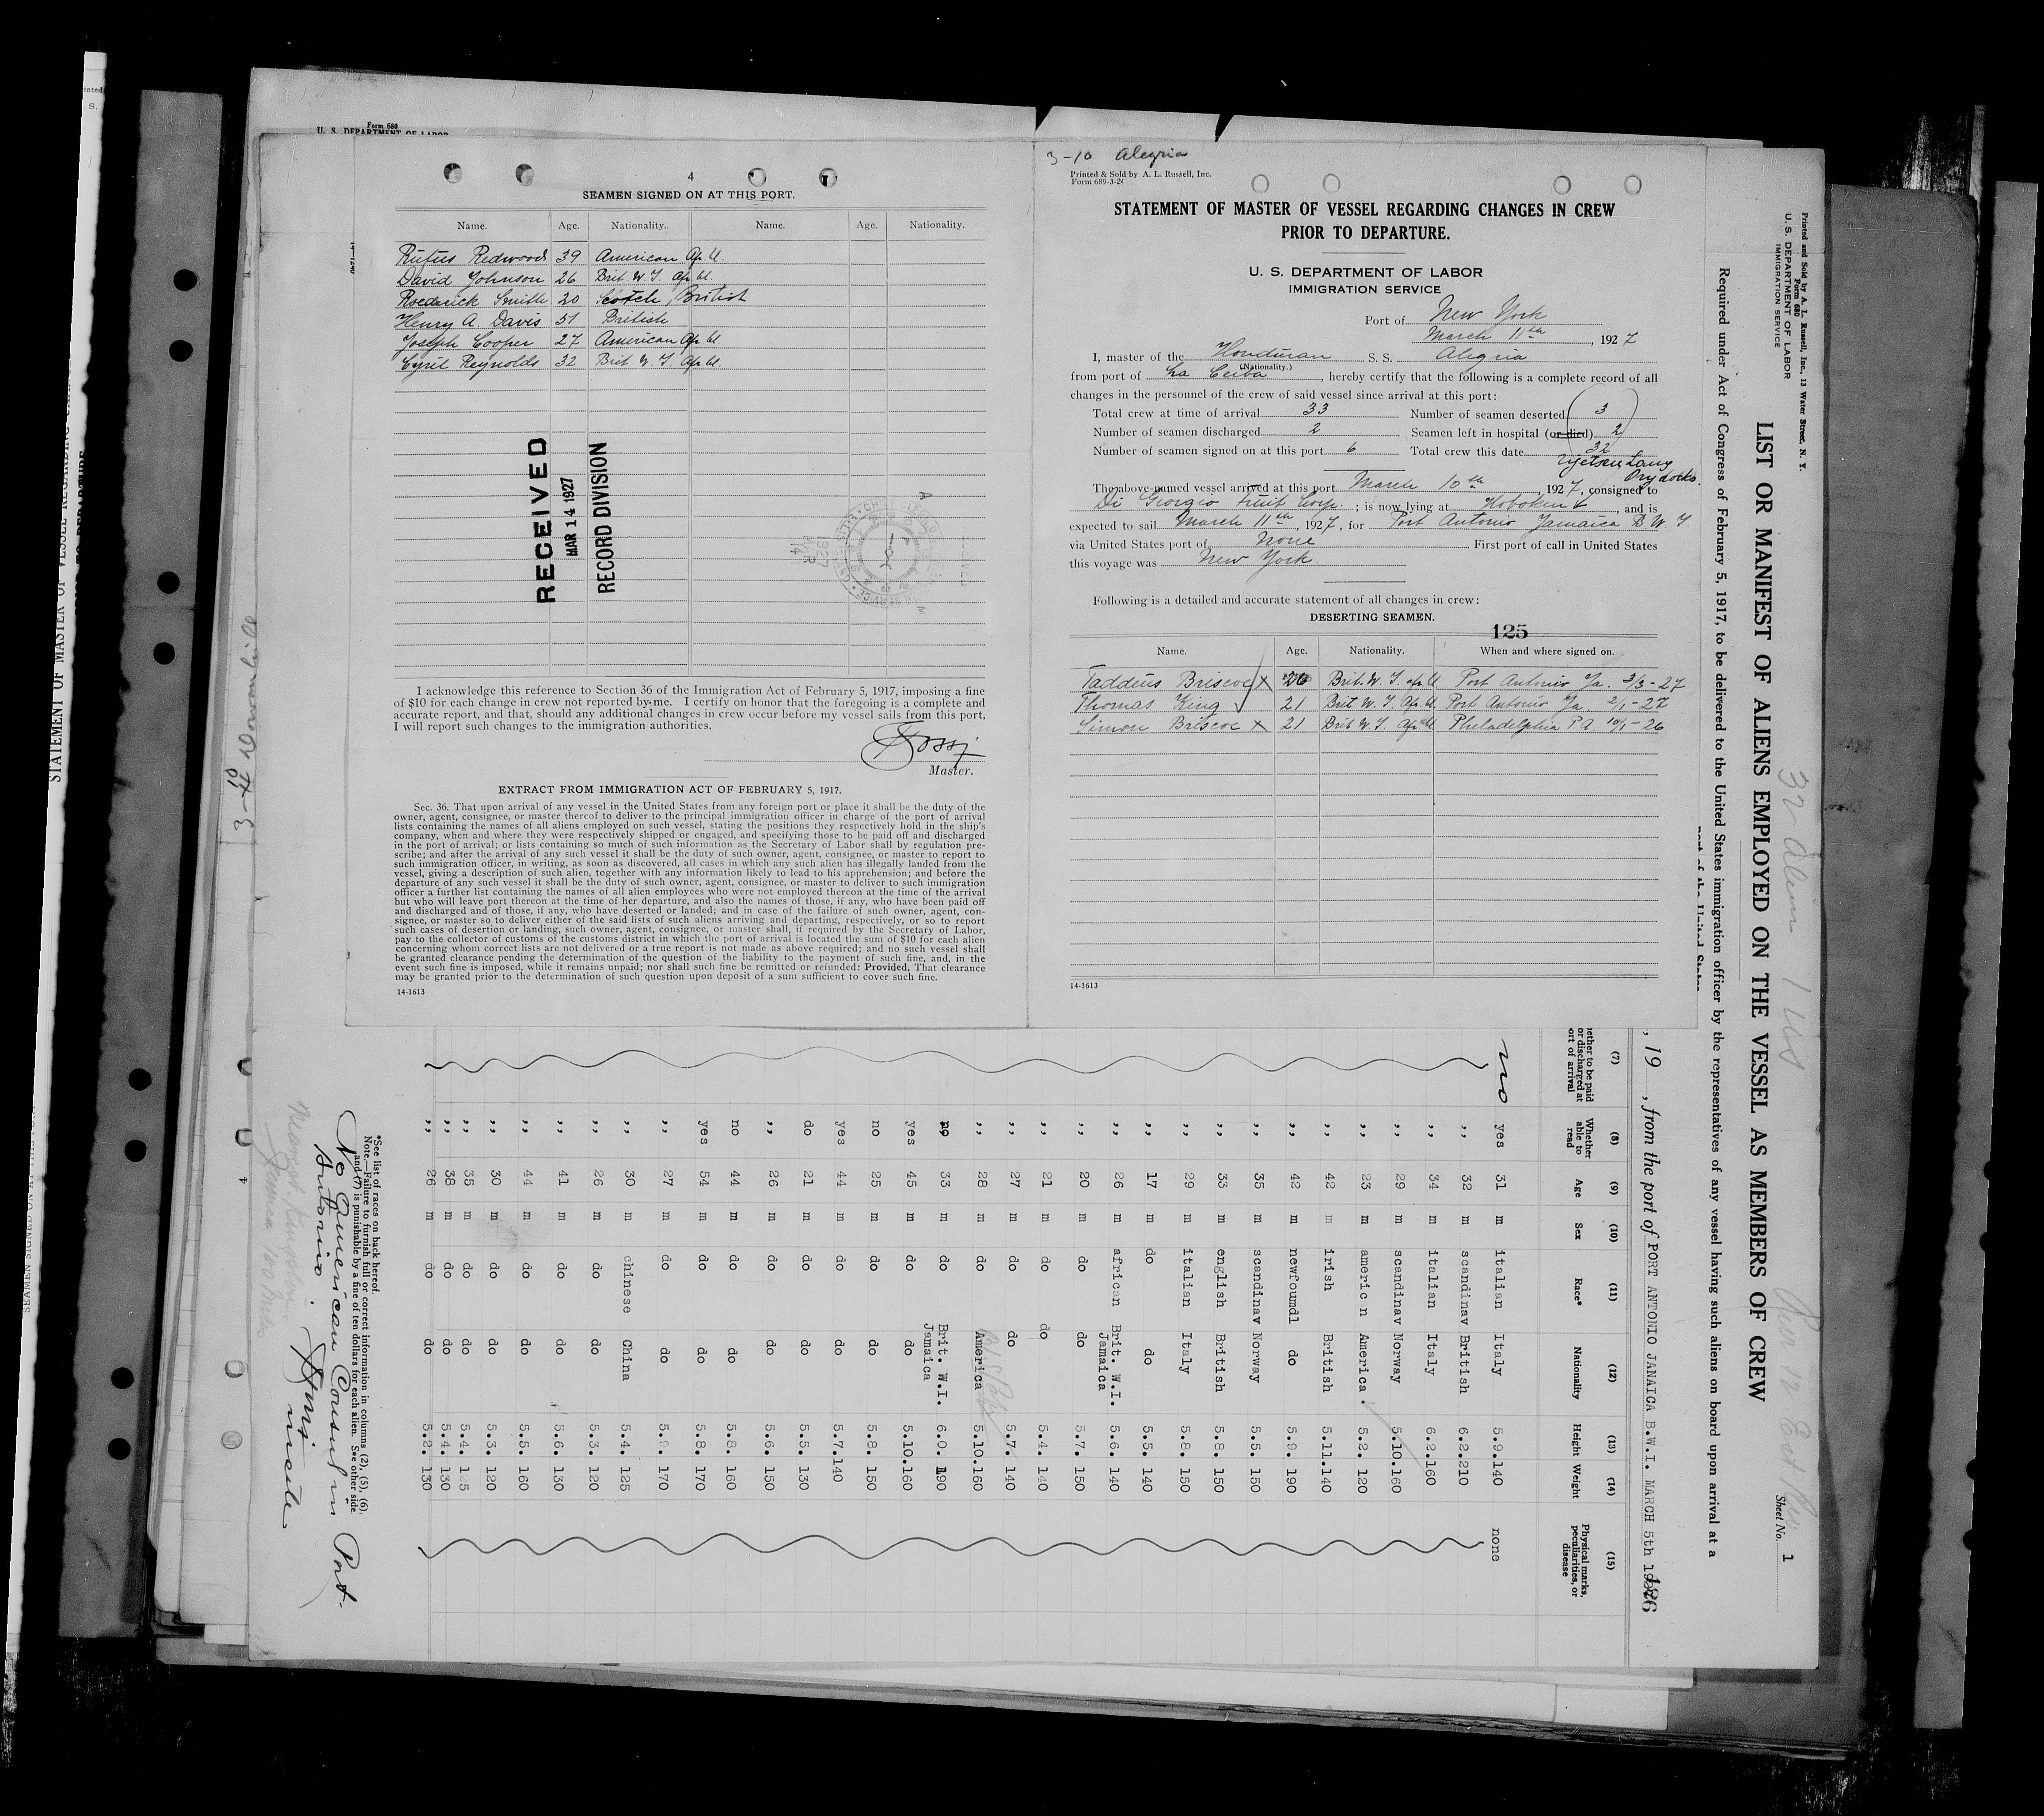 Form 680
U. S. DEPARTMENT OF LABOR
4
SEAMEN SIGNED ON AT THIS PORT.
Name. Age. Nationality. Name. Age. Nationality.
Rufus Redwood 39 American Af bl
David Johnson 26 Brit W I Af bl.
Roederick Smith 20 Scotch British
Henry A. Davis 51 British
Joseph Cooper 27 American Af bl
Cyril Reynolds 32 Brit W. I Af bl.
RECEIVED
MAR 14 1927
RECORD DIVISION
I acknowledge this reference to Section 36 of the Immigration Act of February 5, 1917, imposing a fine
of $10 for each change in crew not reported by me. I certify on honor that the foregoing is a complete and
accurate report, and that, should any additional changes in crew occur before my vessel sails from this port,
I will report such changes to the immigration authorities.
Master.
EXTRACT FROM IMMIGRATION ACT OF FEBRUARY 5, 1917.
Sec. 36. That upon arrival of any vessel in the United States from any foreign port or place it shall be the duty of the
owner, agent, consignee, or master thereof to deliver to the principal immigration officer in charge of the port of arrival
lists containing the names of all aliens employed on such vessel, stating the positions they respectively hold in the ship's
company, when and where they were respectively shipped or engaged, and specifying those to be paid off and discharged
in the port of arrival; or lists containing so much of such information as the Secretary of Labor shall by regulation pre-
scribe; and after the arrival of any such vessel it shall be the duty of such owner, agent, consignee, or master to report to
such immigration officer, in writing, as soon as discovered, all cases in which any such alien has illegally landed from the
vessel, giving a description of such alien, together with any information likely to lead to his apprehension; and before the
departure of any such vessel it shall be the duty of such owner, agent, consignee, or master to deliver to such immigration
officer a further list containing the names of all alien employees who were not employed thereon at the time of the arrival
but who will leave port thereon at the time of her departure, and also the names of those, if any, who have been paid off
and discharged and of those, if any, who have deserted or landed; and in case of the failure of such owner, agent, con-
signee, or master so to deliver either of the said lists of such aliens arriving and departing, respectively, or so to report
such cases of desertion or landing, such owner, agent, consignee, or master shall, if required by the Secretary of Labor,
pay to the collector of customs of the customs district in which the port of arrival is located the sum of $10 for each alien
concerning whom correct lists are not delivered or a true report is not made as above required; and no such vessel shall
be granted clearance pending the determination of the question of the liability to the payment of such fine, and, in the
event such fine is imposed, while it remains unpaid; nor shall such fine be remitted or refunded: Provided, That clearance
may be granted prior to the determination of such question upon deposit of a sum sufficient to cover such fine.
14-1613
3-10 Alegria
Printed & Sold by A. L. Russell, Inc.
Form 689-3-26
STATEMENT OF MASTER OF VESSEL REGARDING CHANGES IN CREW
PRIOR TO DEPARTURE.
U. S. DEPARTMENT OF LABOR
IMMIGRATION SERVICE
Port of New York
March 11th, 1927
I, master of the Honduran S. S. Alegria
(Nationality.)
from port of La Ceiba, hereby certify that the following is a complete record of all
changes in the personnel of the crew of said vessel since arrival at this port:
Total crew at time of arrival 33 Number of seamen deserted 3
Number of seamen discharged 2 Seamen left in hospital (or died) 2
Number of seamen signed on at this port 6 Total crew this date 32
Tietsen Lang
Dry docks.
The above-named vessel arrived at this port March 10th, 1927, consigned to
Di Giorgio Fruit Corp.; is now lying at Hoboken, and is
expected to sail March 11th, 1927, for Port Antonio Jamaica B W I
via United States port of None First port of call in United States
this voyage was New York.
Following is a detailed and accurate statement of all changes in crew:
DESERTING SEAMEN.
125
Name. Age. Nationality. When and where signed on.
Taddeus Briscoe x 26 Brit. W. I. af bl Port Antonio Ja. 3/3-27
Thomas King 21 Brit W I. Af. bl. Port Antonio Ja 2/1-27
Simon Briscoe x 21 Brit W I Af bl Philadelphia PA 10/1-26
14-1613
Printed and Sold by A. L. Russell, Inc., 13 Water Street, N. Y.
Form 680
U. S. DEPARTMENT OF LABOR
IMMIGRATION SERVICE
32 alien 1 US
Sheet No. 1
LIST OR MANIFEST OF ALIENS EMPLOYED ON THE VESSEL AS MEMBERS OF CREW
Required under Act of Congress of February 5, 1917, to be delivered to the United States immigration officer by the representatives of any vessel having such aliens on board upon arrival at a
port of the United States
, 19 , from the port of PORT ANTONIO JANAICA B.W.I. MARCH 5th
126
(7) (8) (9) (10) (11) (12) (13) (14) (15)
Whether to be paid or discharged at port of arrival Whether able to read Age Sex Race* Nationality Height Weight Physical marks, peculiarities, or disease
no yes 31 m italian Italy 5.9.140 none
,, 32 m scandinav British 6.2.210
,, 34 m italian Italy 6.2.160
,, 29 m scandinav Norway 5.10.160
,, 23 m americ n America. 5.2. 120
,, 42 m irish British 5.11.140
,, 42 m newfoundl do 5.9. 190
,, 35 m scandinav Norway 5.5. 150
,, 33 m english British 5.8. 150
,, 29 m italian Italy 5.8. 150
,, 17 m do do 5.5. 140
,, 26 m african Brit. W.I. Jamaica 5.6. 140
,, 20 m do do 5.7. 150
,, 21 m do do 5.4. 140
,, 27 m do do 5.7. 140
,, 28 m do America 5.10.160
no 33 m do Brit. W.I. Jamaica 6.0. 190
yes 45 m do do 5.10.160
no 25 m do do 5.8. 150
yes 44 m do do 5.7.140
do 21 m do do 5.5. 130
,, 26 m do do 5.6. 150
no 44 m do do 5.8. 160
yes 54 m do do 5.8. 170
,, 27 m do do 5.9. 170
,, 30 m chinese China 5.4. 125
,, 26 m do do 5.3. 120
,, 41 m do do 5.6. 130
,, 44 m do do 5.5. 160
,, 30 m do do 5.3. 120
,, 35 m do do 5.4. 125
,, 38 m do do 5.4. 130
,, 26 m do do 5.2. 130
*See list of races on back hereof.
Note.—Failure to furnish full or correct information in columns (2), (5), (6),
and (7) is punishable by a fine of ten dollars for each alien. See other side.
No American Consul in Port
Antonio.